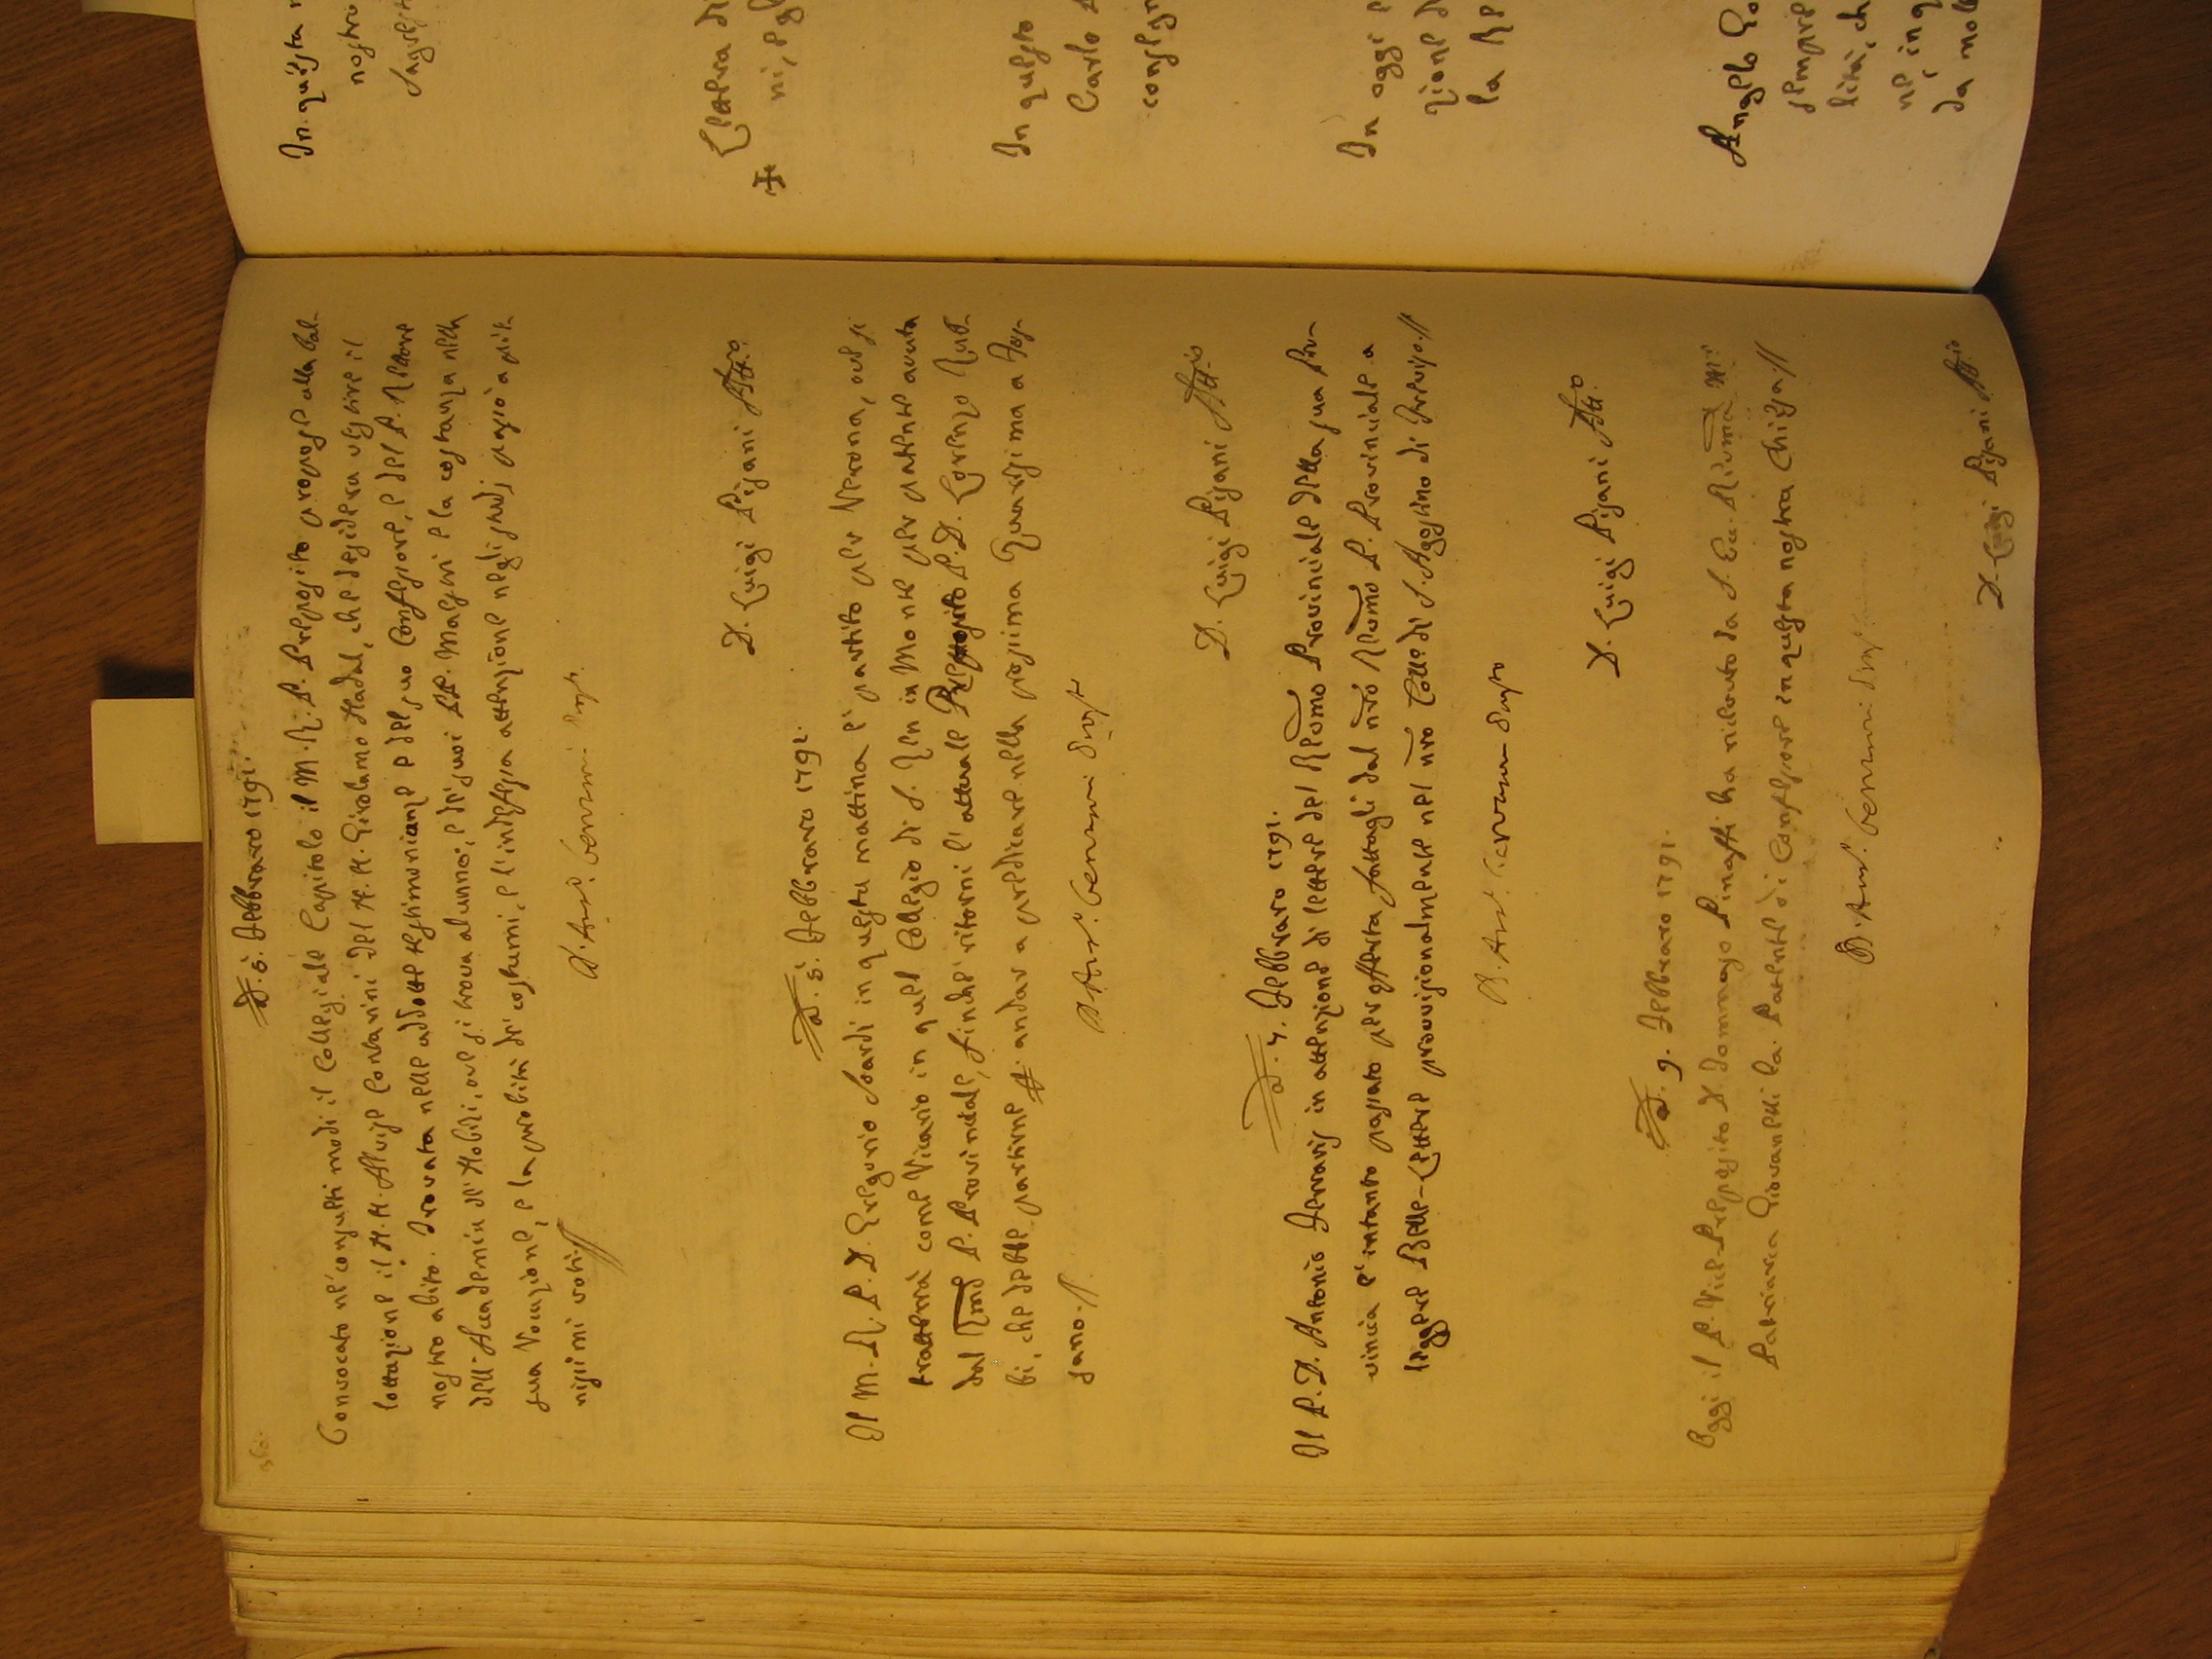 360.
A. 5. Febbraro 1791.
Convocato ne' consulti modi il Collegiale Capitolo il M. R. P. Preposito propose alla bal-
lottazione il N. H. Alvise Contarini del N. H. Girolamo Nadal, che desidera vestire il
nostro abito. Trovata nelle addotte testimonianze e del suo Confessore, e del P. Rettore
dell'Accademia de' Nobili, ove si trova alunno, e de' suoi PP. Maestri e la costanza nella
sua Vocazione, e la probità de' costumi, e l'indefessa attenzione negli studj, passò a
nissimi voti.//
D. Ant. Cervini Prep.
D. Luigi Pisani Att.rio
A. 5. Febbraro 1791.
Il M. R. P. D. Gregorio Soardi in questa mattina è partito per Verona, ove si
tratterrà come Vicario in quel Collegio di S. Zen in Monte per patente avuta
dal P. Provinciale, finchè ritorni l'attuale Preposito P. D. Lorenzo
bi, che debbe partirne andar a predicare nella prossima Quaresima a
sano.//
D. Ant. Cervini Prep.to
D. Luigi Pisani Att.rio
A. 7. Febbraro 1791.
Il P. D. Antonio Ferraris in attenzione di lettere del R̃mo Provinciale della sua Pro-
vincia è intanto passato per offerta fattagli dal ñro R̃mo P. Provinciale a
leggere Belle-Lettere provvisionalmente nel ñro Coll.o di S. Agostino di Treviso.//
D. Ant. Cervini Prep.to
D. Luigi Pisani Att.rio
A. 9. Febbraro 1791.
Oggi il P. Vice-Preposito D. Tommaso Pinaffi ha ricevuto da S. Em. R̃ma
Patriarca Giovanelli la Patente di Confessore in questa nostra Chiesa.//
D. Ant. Cervini Prep.
D. Luigi Pisani Att.rio
In questa
nostro
Lettera di
ni, e
In questo
Carlo
consegn
In oggi
zione d
la
Angelo
sempre
lità, ch
ne, in q
da mol